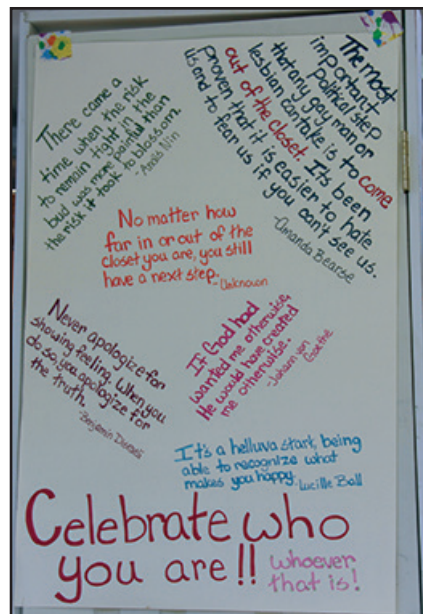 There came a
time when the risk
to remain tight in the
bud was more painful than
the risk it took to blossom.
-Anaïs Nin
The most
important
political step
that any gay man or
lesbian can take is to come
out of the closet. It's been
proven that it is easier to hate
us and to fear us if you can't see us.
-Amanda Bearse
No matter how
far in or out of the
closet you are, you still
have a next step.
-Unknown
Never apologize for
showing feeling. When you
do so, you apologize for
the truth.
-Benjamin Disraeli
If God had
wanted me otherwise,
He would have created
me otherwise.
-Johann von
Goethe
It's a helluva start, being
able to recognize what
makes you happy. -Lucille Ball
Celebrate who
you are!! whoever
that is!